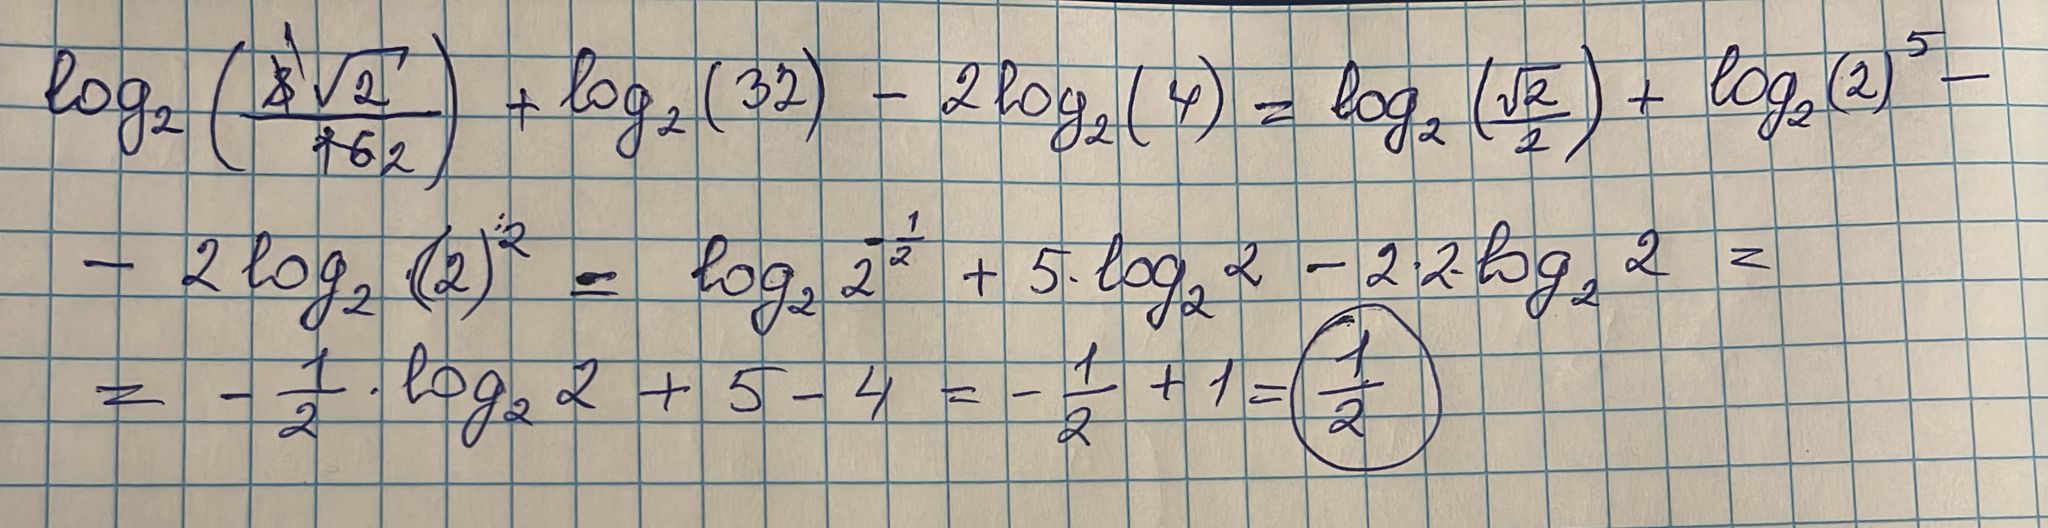 log₂(8√2/16) + log₂(32) − 2log₂(4) = log₂(√2/2) + log₂(2)⁵ −
− 2log₂(2)² = log₂ 2^(-1/2) + 5·log₂ 2 − 2·2·log₂ 2 =
= − 1/2 · log₂ 2 + 5 − 4 = − 1/2 + 1 = 1/2